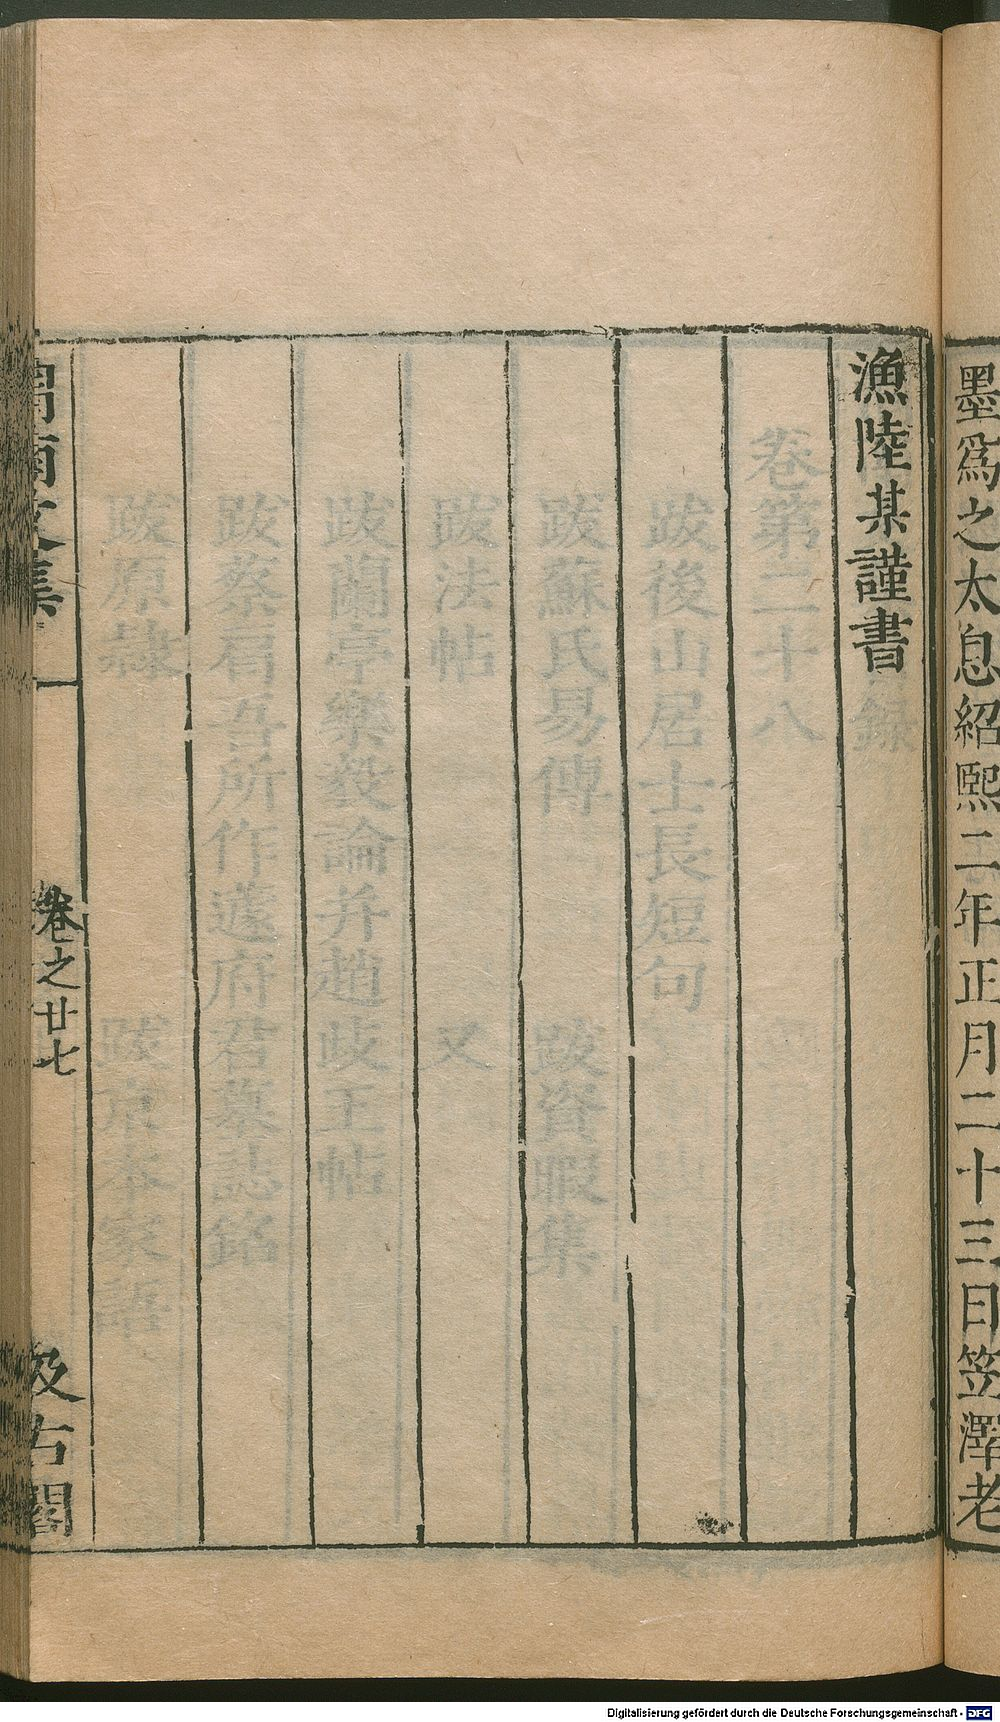 墨爲之太息紹熙二年正月二十三日笠澤老
漁陸某謹書
卷第二十八
跋後山居士長短句
跋蘇氏易傳 跋資暇集
跋法帖 又
跋蘭亭樂毅論并趙岐王帖
跋蔡君所作蘧府君墓誌銘
跋京本家語
渭南文集
卷之廿七
汲古閣
Digitalisierung gefördert durch die Deutsche Forschungsgemeinschaft - DFG